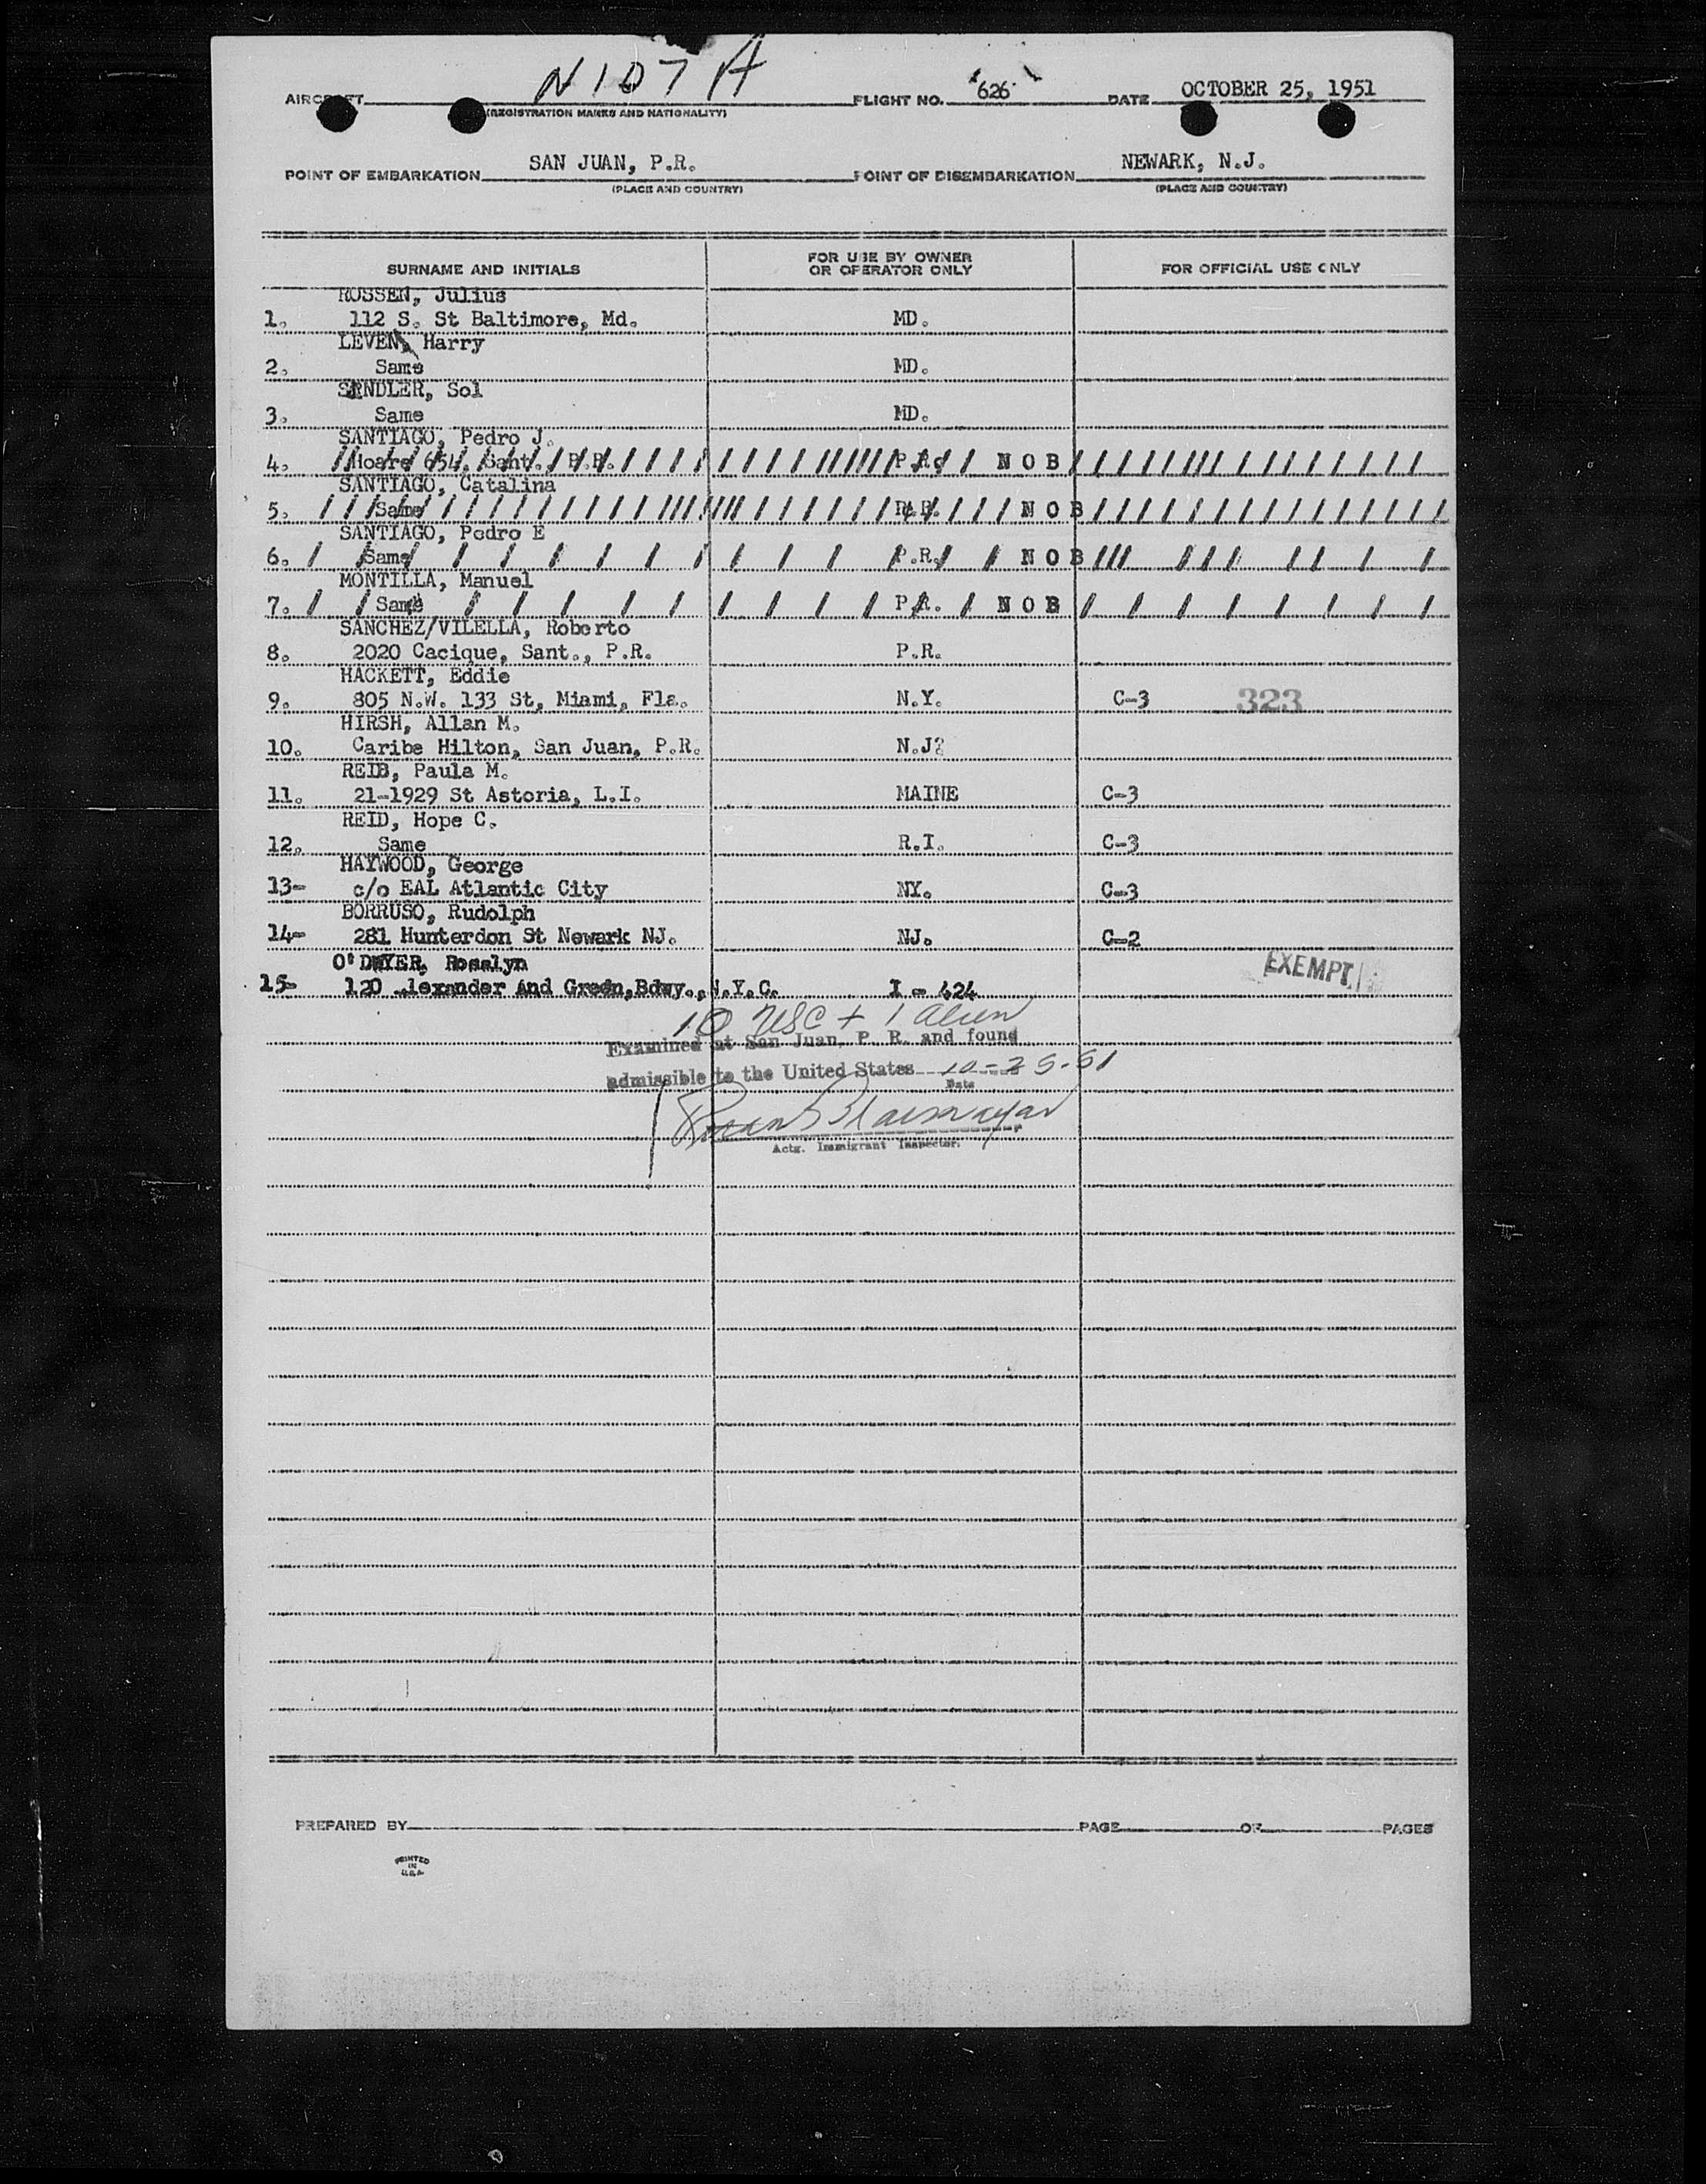 N 107 A
AIRCRAFT FLIGHT NO. 626 DATE OCTOBER 25, 1951
(REGISTRATION MARKS AND NATIONALITY)
POINT OF EMBARKATION SAN JUAN, P.R. POINT OF DISEMBARKATION NEWARK, N.J.
(PLACE AND COUNTRY) (PLACE AND COUNTRY)
SURNAME AND INITIALS FOR USE BY OWNER OR OPERATOR ONLY FOR OFFICIAL USE ONLY
ROSSEN, Julius
1. 112 S. St Baltimore, Md. MD.
LEVEN, Harry
2. Same MD.
SENDLER, Sol
3. Same MD.
SANTIAGO, Pedro J.
4. Hoare 654, Sant., P.R. P.R. N O B
SANTIAGO, Catalina
5. Same P.R. N O B
SANTIAGO, Pedro E
6. Same P.R. N O B
MONTILLA, Manuel
7. Same P.R. N O B
SANCHEZ/VILELLA, Roberto
8. 2020 Cacique, Sant., P.R. P.R.
HACKETT, Eddie
9. 805 N.W. 133 St, Miami, Fla. N.Y. C-3 323
HIRSH, Allan M.
10. Caribe Hilton, San Juan, P.R. N.J?
REIB, Paula M.
11. 21-1929 St Astoria, L.I. MAINE C-3
REID, Hope C.
12. Same R.I. C-3
HAYWOOD, George
13- c/o EAL Atlantic City NY. C-3
BORRUSO, Rudolph
14- 281 Hunterdon St Newark NJ. NJ. C-2
O'DWYER, Rosalyn
15- 120 lexander And Green,Bdwy.,N.Y.C. I - 424 EXEMPT
10 USC + 1 alien
Examined at San Juan, P. R. and found
admissible to the United States 10-25-51
Date
Actg. Immigrant Inspector.
PREPARED BY PAGE OF PAGES
PRINTED
IN
U.S.A.